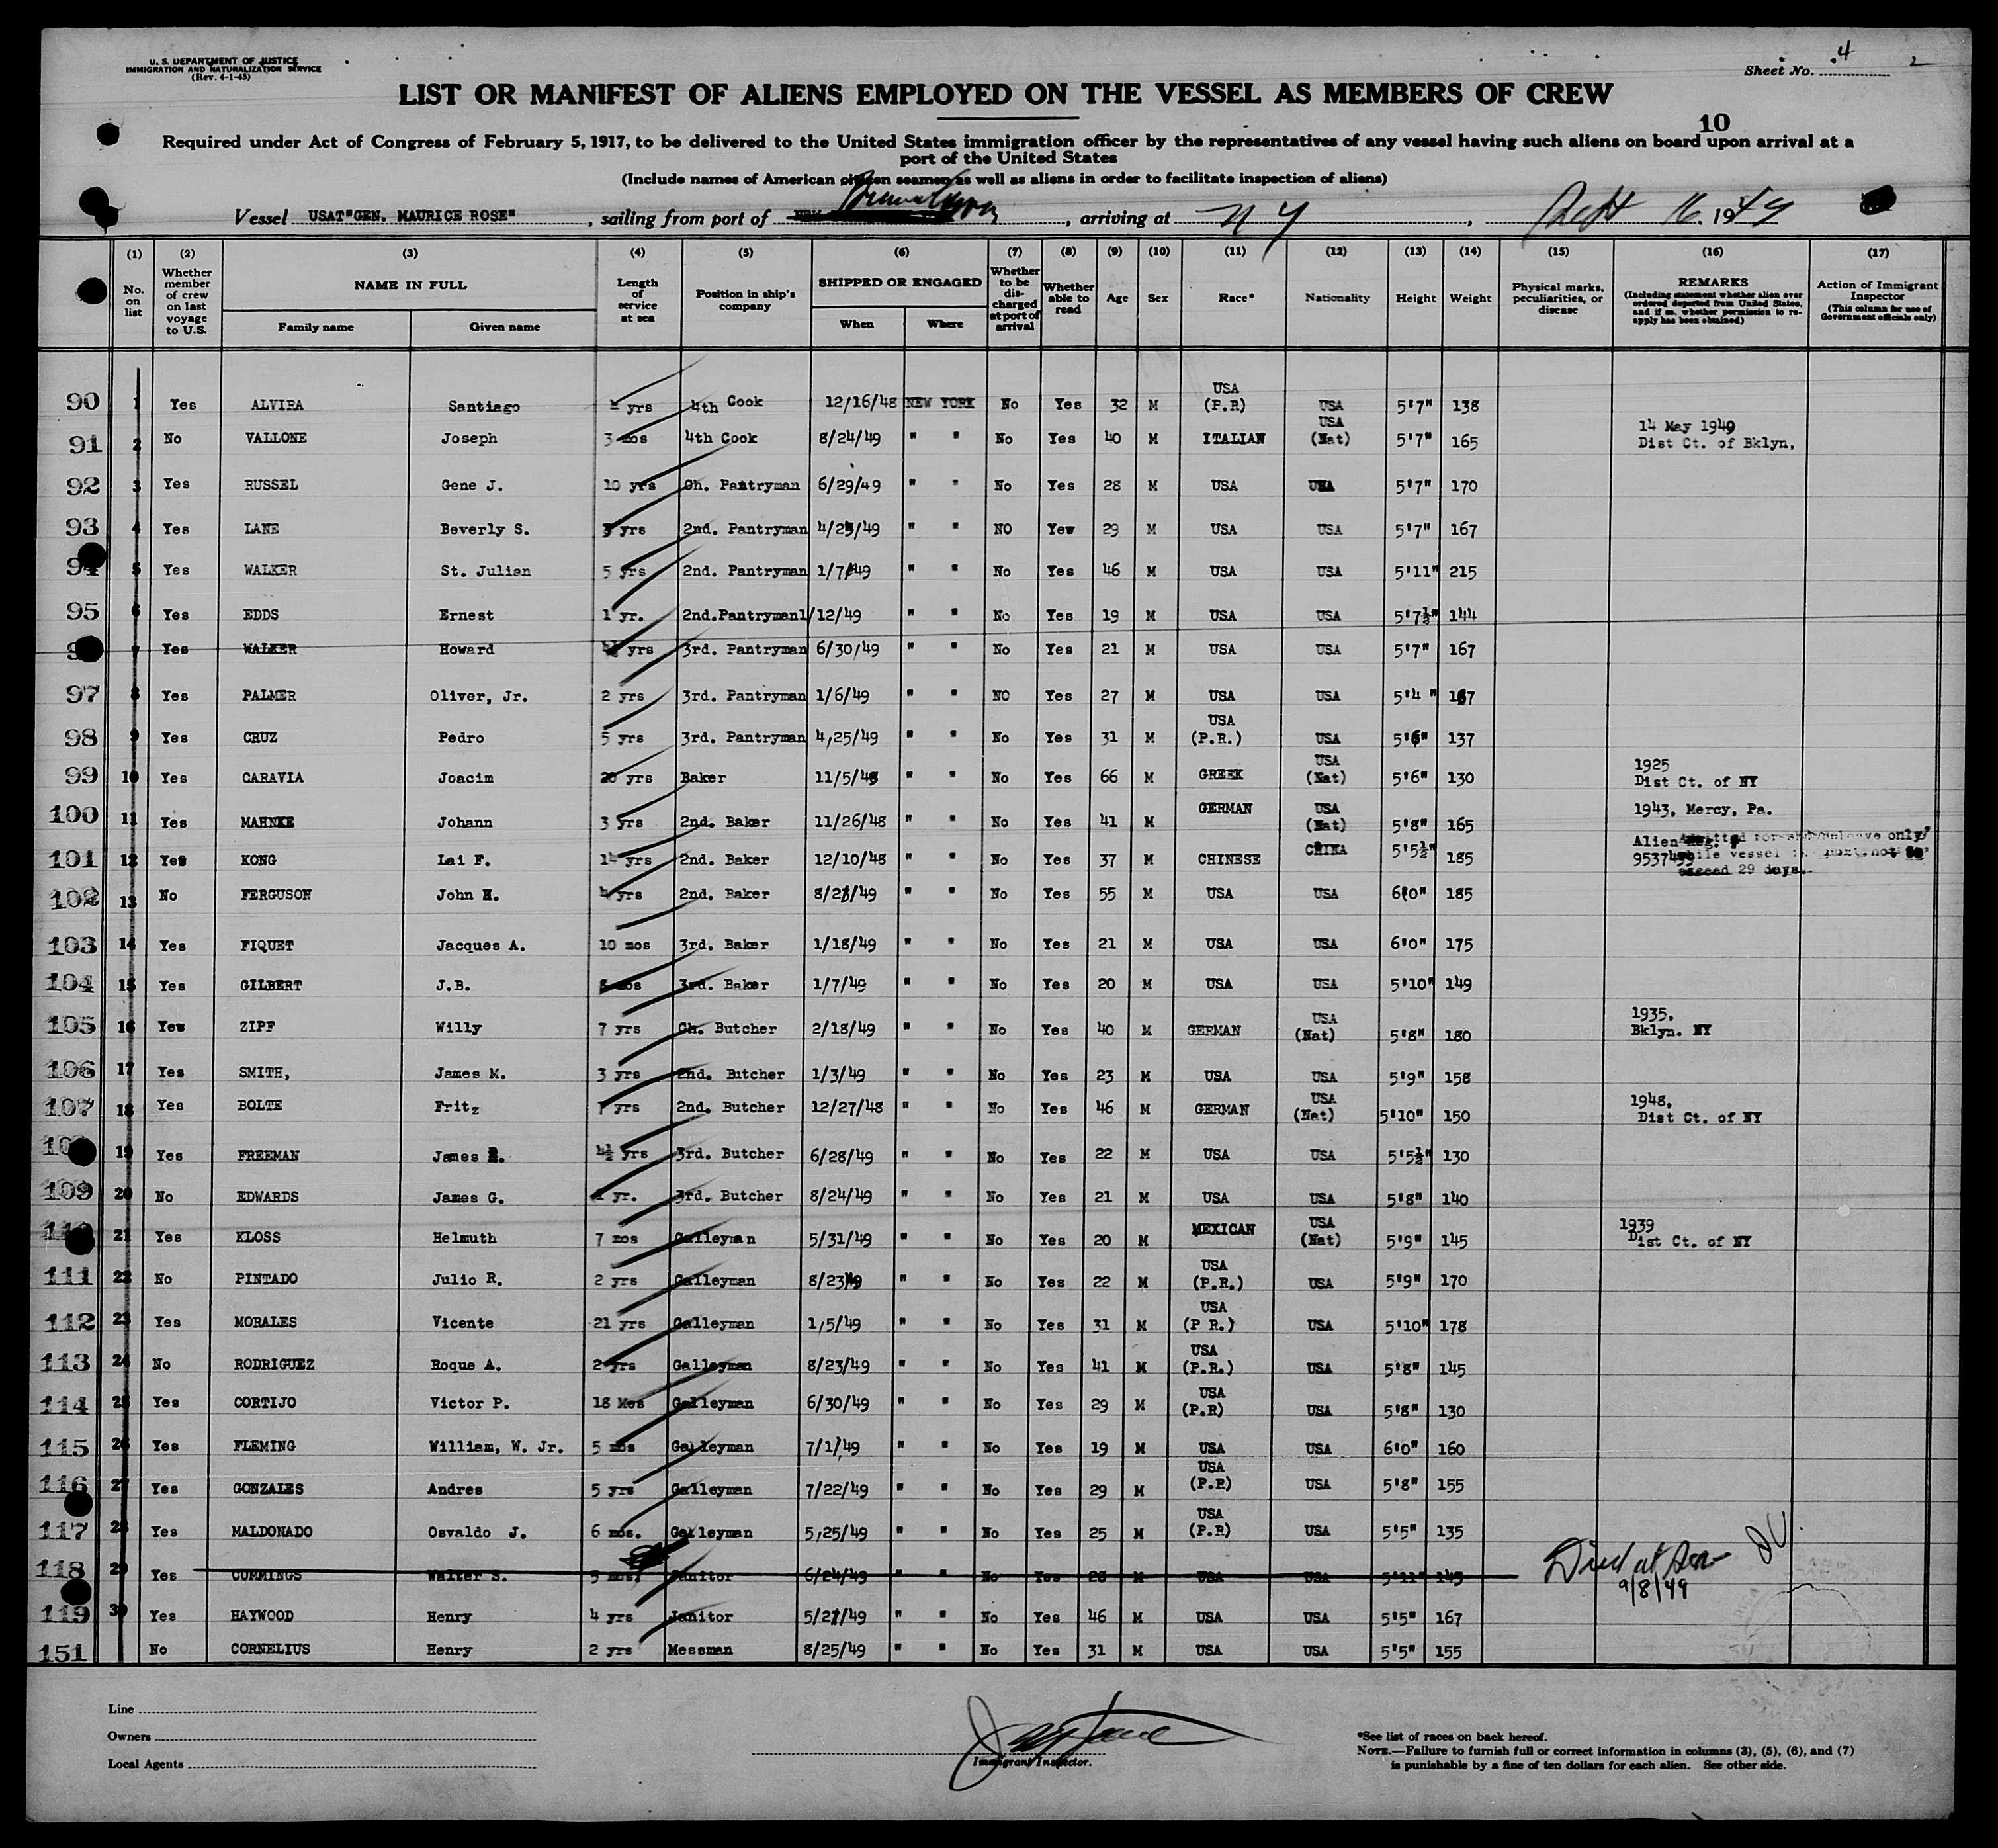 U. S. DEPARTMENT OF JUSTICE
IMMIGRATION AND NATURALIZATION SERVICE
(Rev. 4-1-45)
Sheet No. 4 2
LIST OR MANIFEST OF ALIENS EMPLOYED ON THE VESSEL AS MEMBERS OF CREW
10
Required under Act of Congress of February 5, 1917, to be delivered to the United States immigration officer by the representatives of any vessel having such aliens on board upon arrival at a
port of the United States
(Include names of American citizen seamen as well as aliens in order to facilitate inspection of aliens)
Vessel USAT "GEN. MAURICE ROSE", sailing from port of Bremerhaven, arriving at N Y, Sept 16. 1949
(1) (2) (3) (4) (5) (6) (7) (8) (9) (10) (11) (12) (13) (14) (15) (16) (17)
No. on list
Whether member of crew on last voyage to U.S.
NAME IN FULL
Family name
Given name
Length of service at sea
Position in ship's company
SHIPPED OR ENGAGED
When
Where
Whether to be discharged at port of arrival
Whether able to read
Age
Sex
Race*
Nationality
Height
Weight
Physical marks, peculiarities, or disease
REMARKS
(Including statement whether alien ever ordered deported from United States, and if so, whether permission to re-apply has been obtained)
Action of Immigrant Inspector
(This column for use of Government officials only)
90 1 Yes ALVIRA Santiago yrs 4th Cook 12/16/48 NEW YORK No Yes 32 M USA (P.R) USA 5'7" 138
91 2 No VALLONE Joseph 3 mos 4th Cook 8/24/49 " " No Yes 40 M ITALIAN USA (Nat) 5'7" 165 14 May 1949 Dist Ct. of Bklyn,
92 3 Yes RUSSEL Gene J. 10 yrs Ch. Pantryman 6/29/49 " " No Yes 28 M USA USA 5'7" 170
93 4 Yes LANE Beverly S. yrs 2nd. Pantryman 4/25/49 " " NO Yew 29 M USA USA 5'7" 167
94 5 Yes WALKER St. Julian 5 yrs 2nd. Pantryman 1/7/49 " " No Yes 46 M USA USA 5'11" 215
95 6 Yes EDDS Ernest 1 yr. 2nd.Pantryman 1/12/49 " " No Yes 19 M USA USA 5'7½" 144
7 Yes WALKER Howard yrs 3rd. Pantryman 6/30/49 " " No Yes 21 M USA USA 5'7" 167
97 8 Yes PALMER Oliver, Jr. 2 yrs 3rd. Pantryman 1/6/49 " " NO Yes 27 M USA USA 5'4" 167
98 9 Yes CRUZ Pedro 5 yrs 3rd. Pantryman 4,25/49 " " No Yes 31 M USA (P.R.) USA 5'6" 137
99 10 Yes CARAVIA Joacim 20 yrs Baker 11/5/48 " " No Yes 66 M GREEK USA (Nat) 5'6" 130 1925 Dist Ct. of NY
100 11 Yes MAHNKE Johann 3 yrs 2nd. Baker 11/26/48 " " No Yes 41 M GERMAN USA (Nat) 5'8" 165 1943, Mercy, Pa.
101 12 Yes KONG Lai F. yrs 2nd. Baker 12/10/48 " " No Yes 37 M CHINESE CHINA 5'5½" 185 Alien Reg. # 9537455 Admitted for shore leave only while vessel in port, not to exceed 29 days.
102 13 No FERGUSON John H. yrs 2nd. Baker 8/23/49 " " No Yes 55 M USA USA 6'0" 185
103 14 Yes FIQUET Jacques A. 10 mos 3rd. Baker 1/18/49 " " No Yes 21 M USA USA 6'0" 175
104 15 Yes GILBERT J.B. mos 3rd. Baker 1/7/49 " " No Yes 20 M USA USA 5'10" 149
105 16 Yew ZIPF Willy 7 yrs Ch. Butcher 2/18/49 " " No Yes 40 M GERMAN USA (Nat) 5'8" 180 1935, Bklyn. NY
106 17 Yes SMITH, James M. 3 yrs 2nd. Butcher 1/3/49 " " No Yes 23 M USA USA 5'9" 158
107 18 Yes BOLTE Fritz 7 yrs 2nd. Butcher 12/27/48 " " No Yes 46 M GERMAN USA (Nat) 5'10" 150 1948, Dist Ct. of NY
19 Yes FREEMAN James 4½ yrs 3rd. Butcher 6/28/49 " " No Yes 22 M USA USA 5'5½" 130
109 20 No EDWARDS James G. 1 yr. 3rd. Butcher 8/24/49 " " No Yes 21 M USA USA 5'8" 140
110 21 Yes KLOSS Helmuth 7 mos Galleyman 5/31/49 " " No Yes 20 M MEXICAN USA (Nat) 5'9" 145 1939 Dist Ct. of NY
111 22 No PINTADO Julio R. 2 yrs Galleyman 8/23/49 " " No Yes 22 M USA (P.R.) USA 5'9" 170
112 23 Yes MORALES Vicente 21 yrs Galleyman 1,5/49 " " No Yes 31 M USA (P R.) USA 5'10" 178
113 24 No RODRIGUEZ Roque A. 2 yrs Galleyman 8/23/49 " " No Yes 41 M USA (P.R.) USA 5'8" 145
114 25 Yes CORTIJO Victor P. 18 Mos Galleyman 6/30/49 " " No Yes 29 M USA (P.R) USA 5'8" 130
115 26 Yes FLEMING William, W. Jr. 5 mos Galleyman 7/1/49 " " No Yes 19 M USA USA 6'0" 160
116 27 Yes GONZALES Andres 5 yrs Galleyman 7/22/49 " " No Yes 29 M USA (P.R) USA 5'8" 155
117 28 Yes MALDONADO Osvaldo J. 6 mos. Galleyman 5,25/49 " " No Yes 25 M USA (P.R) USA 5'5" 135
118 29 Yes CUMMINGS Walter S. 5 mos. Janitor 6/24/49 No Yes 28 M USA USA 5'11" 145 Died at Sea 9/8/49
119 30 Yes HAYWOOD Henry 4 yrs Janitor 5/27/49 " " No Yes 46 M USA USA 5'5" 167
151 No CORNELIUS Henry 2 yrs Messman 8/25/49 " " No Yes 31 M USA USA 5'5" 155
Line
Owners
Local Agents
Immigrant Inspector.
*See list of races on back hereof.
NOTE.—Failure to furnish full or correct information in columns (3), (5), (6), and (7)
is punishable by a fine of ten dollars for each alien. See other side.